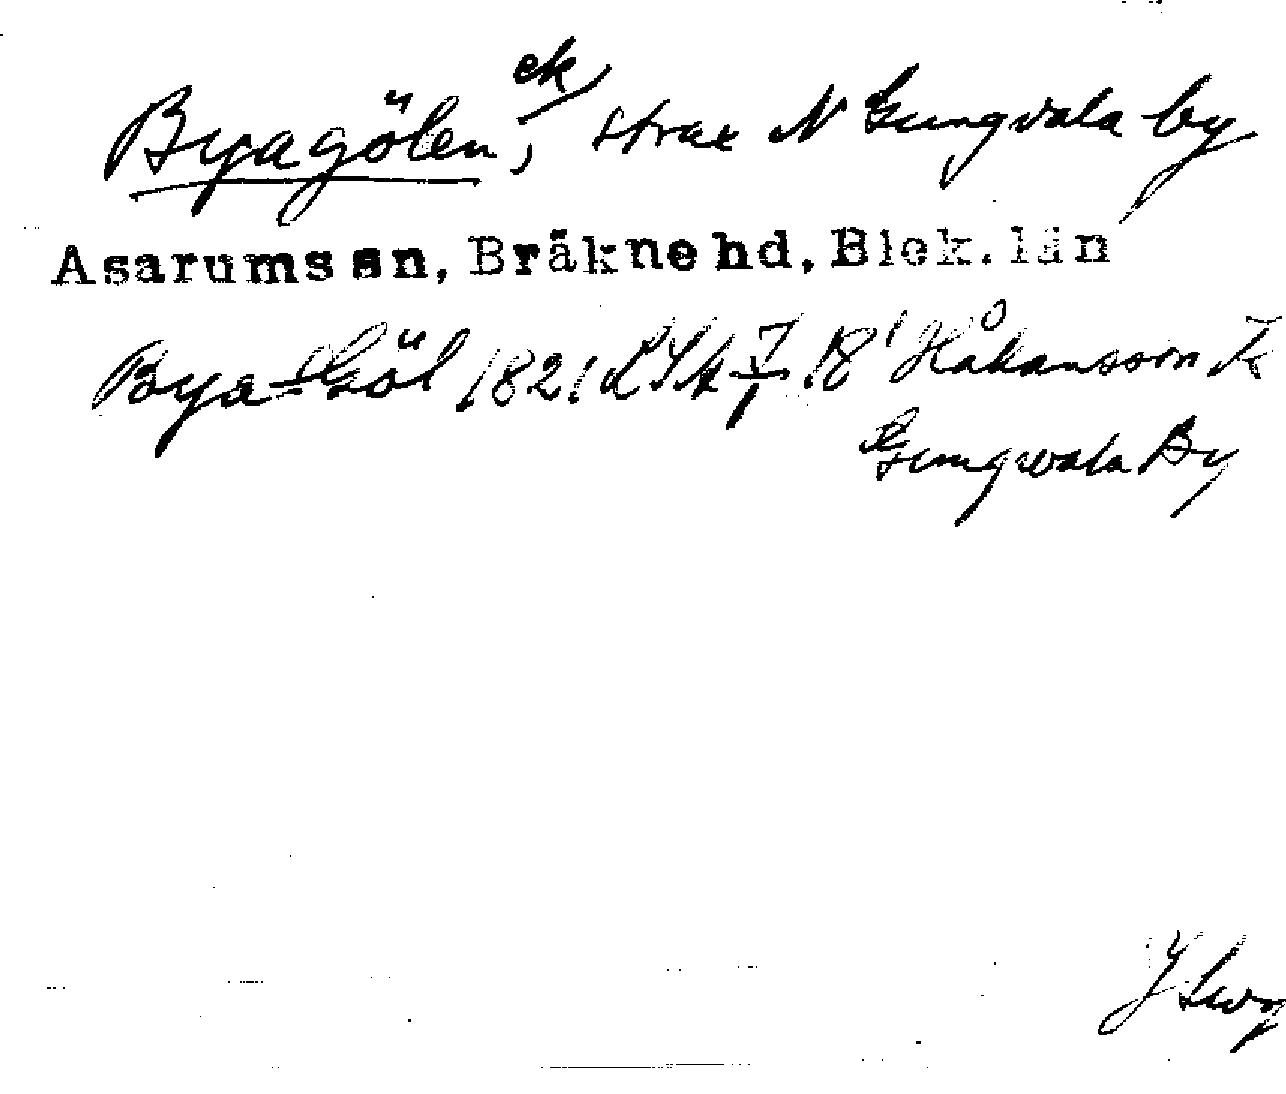 Byagölen, ek strax N Gungvala by
Asarums sn, Bräkne hd, Blek. län
Bya-Göl 1821 LSA 7/1 18 Håkansson K
Gungvala By